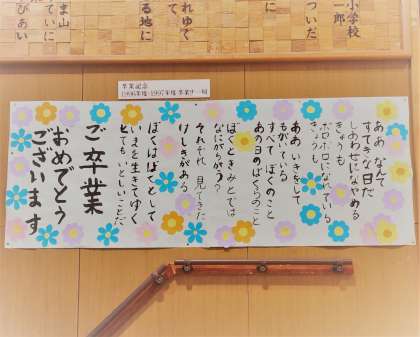 小学校
一郎
ついだ
れゆで
る地に
ま山
ていに
びあい
卒業記念
ああ なんて
すてきな日だ
しあわせになやめる
きょうも
ボロボロになれている
きょうも
ああ いきをして
もがいている
すべて ぼくのこと
あの日のぼくらのこと
ぼくときみとでは
なにがちがう？
それぞれ 見てきた
けしきがある
ぼくはぼくとして
いまを生きてゆく
とても いとしいことだ
ご卒業
おめでとう
ございます